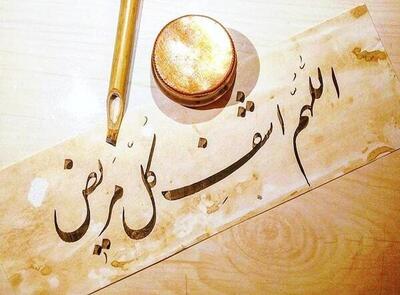 اللّٰهُمَّ اشفِ كلَّ مَریض